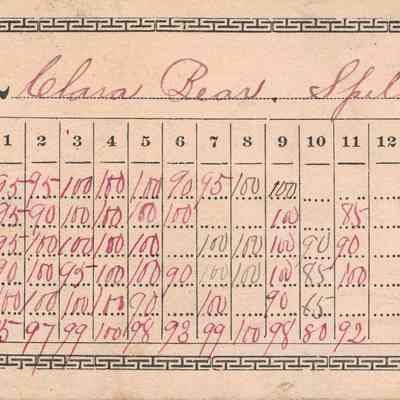 Clara Bear. Spel
1 2 3 4 5 6 7 8 9 10 11 12
95 95 100 100 100 90 95 100 100
95 90 100 100 100 100 100 85
95 100 100 100 100 100 100 100 90 90
90 100 95 100 100 90 100 100 100 85 100
100 100 100 100 90 100 90 65
95 97 99 100 98 93 99 100 98 80 92